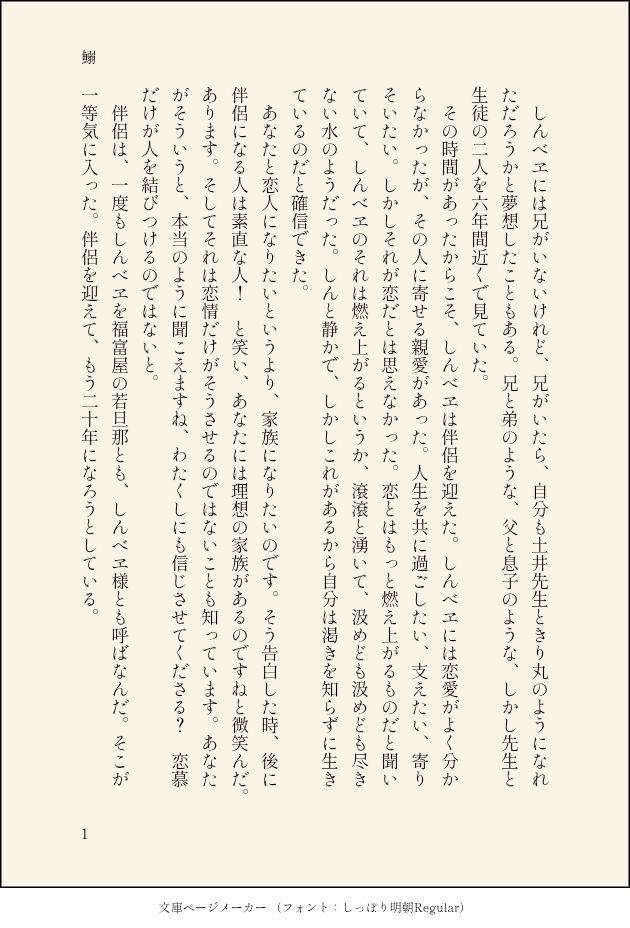 鰯
しんべヱには兄がいないけれど、兄がいたら、自分も土井先生ときり丸のようになれ
ただろうかと夢想したこともある。兄と弟のような、父と息子のような、しかし先生と
生徒の二人を六年間近くで見ていた。
その時間があったからこそ、しんべヱは伴侶を迎えた。しんべヱには恋愛がよく分か
らなかったが、その人に寄せる親愛があった。人生を共に過ごしたい、支えたい、寄り
そいたい。しかしそれが恋だとは思えなかった。恋とはもっと燃え上がるものだと聞い
ていて、しんべヱのそれは燃え上がるというか、滾滾と湧いて、汲めども汲めども尽き
ない水のようだった。しんと静かで、しかしこれがあるから自分は渇きを知らずに生き
ているのだと確信できた。
あなたと恋人になりたいというより、家族になりたいのです。そう告白した時、後に
伴侶になる人は素直な人！　と笑い、あなたには理想の家族があるのですねと微笑んだ。
あります。そしてそれは恋情だけがそうさせるのではないことも知っています。あなた
がそういうと、本当のように聞こえますね、わたくしにも信じさせてくださる？　恋慕
だけが人を結びつけるのではないと。
伴侶は、一度もしんべヱを福富屋の若旦那とも、しんべヱ様とも呼ばなんだ。そこが
一等気に入った。伴侶を迎えて、もう二十年になろうとしている。
1
文庫ページメーカー （フォント：しっぽり明朝Regular）